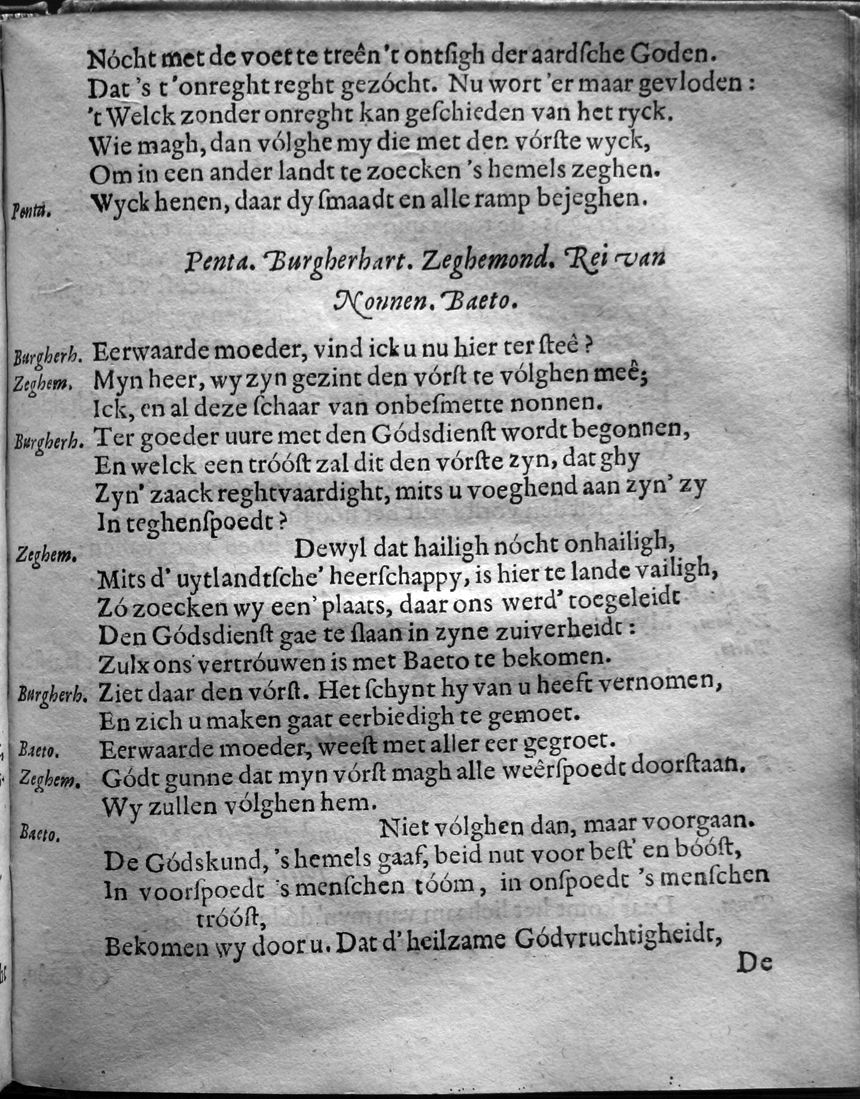 Nócht met de voet te treên 't ontſigh der aardſche Goden.
Dat 's t 'onreght reght gezócht. Nu wort 'er maar gevloden:
't Welck zonder onreght kan geſchieden van het ryck.
Wie magh, dan vólghe my die met den vórſte wyck,
Om in een ander landt te zoecken 's hemels zeghen.
Penta. Wyck henen, daar dy ſmaadt en alle ramp bejeghen.
Penta. Burgherhart. Zeghemond. Rei van
Nonnen. Baeto.
Burgherh. Eerwaarde moeder, vind ick u nu hier ter ſteê?
Zeghem. Myn heer, wy zyn gezint den vórſt te vólghen meê;
Ick, en al deze ſchaar van onbeſmette nonnen.
Burgherh. Ter goeder uure met den Gódsdienſt wordt begonnen,
En welck een tróóſt zal dit den vórſte zyn, dat ghy
Zyn' zaack reghtvaardight, mits u voeghend aan zyn' zy
In teghenſpoedt?
Zeghem. Dewyl dat hailigh nócht onhailigh,
Mits d' uytlandtſche' heerſchappy, is hier te lande vailigh,
Zó zoecken wy een' plaats, daar ons werd' toegeleidt
Den Gódsdienſt gae te ſlaan in zyne zuiverheidt:
Zulx ons vertróuwen is met Baeto te bekomen.
Burgherh. Ziet daar den vórſt. Het ſchynt hy van u heeft vernomen,
En zich u maken gaat eerbiedigh te gemoet.
Baeto. Eerwaarde moeder, weeſt met aller eer gegroet.
Zeghem. Gódt gunne dat myn vórſt magh alle weêrſpoedt doorſtaan.
Wy zullen vólghen hem.
Baeto. Niet vólghen dan, maar voorgaan.
De Gódskund, 's hemels gaaf, beid nut voor beſt' en bóóſt,
In voorſpoedt 's menſchen tóóm, in onſpoedt 's menſchen
tróóſt,
Bekomen wy door u. Dat d' heilzame Gódvruchtigheidt,
De